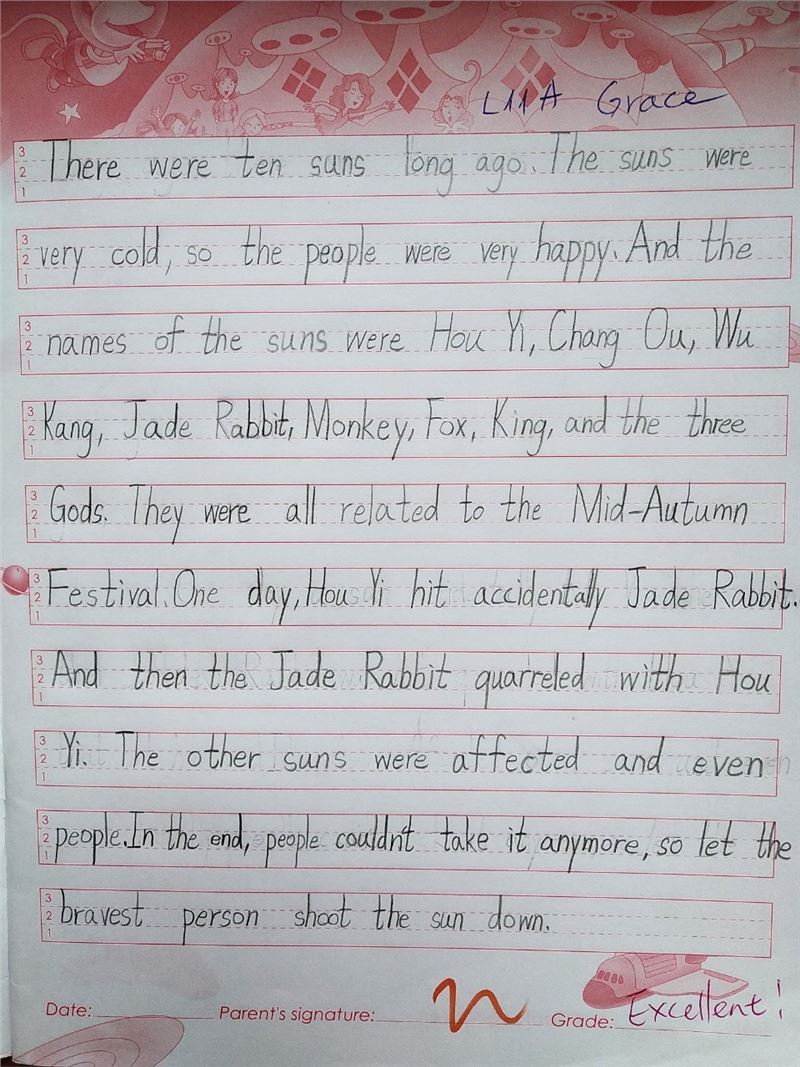 L11A Grace
There were ten suns long ago. The suns were
very cold, so the people were very happy. And the
names of the suns were Hou Yi, Chang Ou, Wu
Kang, Jade Rabbit, Monkey, Fox, King, and the three
Gods. They were all related to the Mid-Autumn
Festival. One day, Hou Yi hit accidentally Jade Rabbit.
And then the Jade Rabbit quarreled with Hou
Yi. The other suns were affected and even
people. In the end, people couldn't take it anymore, so let the
bravest person shoot the sun down.
Date: Parent's signature: Grade: Excellent!